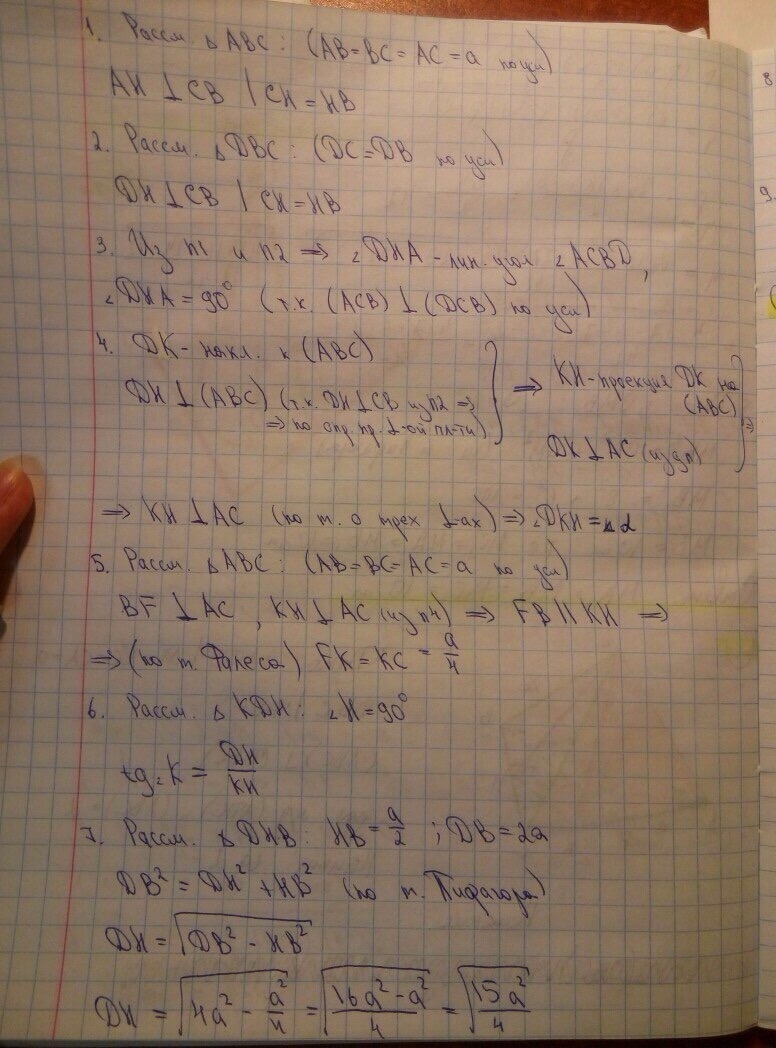 1. Рассм. △ABC: (AB=BC=AC=a по усл)
AH⊥CB | CH=HB
2. Рассм. △DBC: (DC=DB по усл)
DH⊥CB | CH=HB
3. Из п1 и п2 ⇒ ∠DHA - лин. угол ∠ACBD,
∠DHA=90° (т.к. (ACB)⊥(DCB) по усл)
4. DK - накл. к (ABC)
DH⊥(ABC) (т.к. DH⊥CB из п2 ⇒
⇒ по опр. пр. ⊥-ой пл-ти)
⇒ KH - проекция DK на
(ABC)
DK⊥AC (из дп) ⇒
⇒ KH⊥AC (по т. о трех ⊥-ах) ⇒ ∠DKH = ∠α
5. Рассм. △ABC: (AB=BC=AC=a по усл)
BF⊥AC, KH⊥AC (из п4) ⇒ FB||KH ⇒
⇒ (по т. Фалеса) FK=KC=a/4
6. Рассм. △KDH: ∠H=90°
tg∠K = DH/KH
7. Рассм. △DHB: HB=a/2; DB=2a
DB²=DH²+HB² (по т. Пифагора)
DH=√(DB²-HB²)
DH = √(4a² - a²/4) = √((16a²-a²)/4) = √(15a²/4)
8
9.